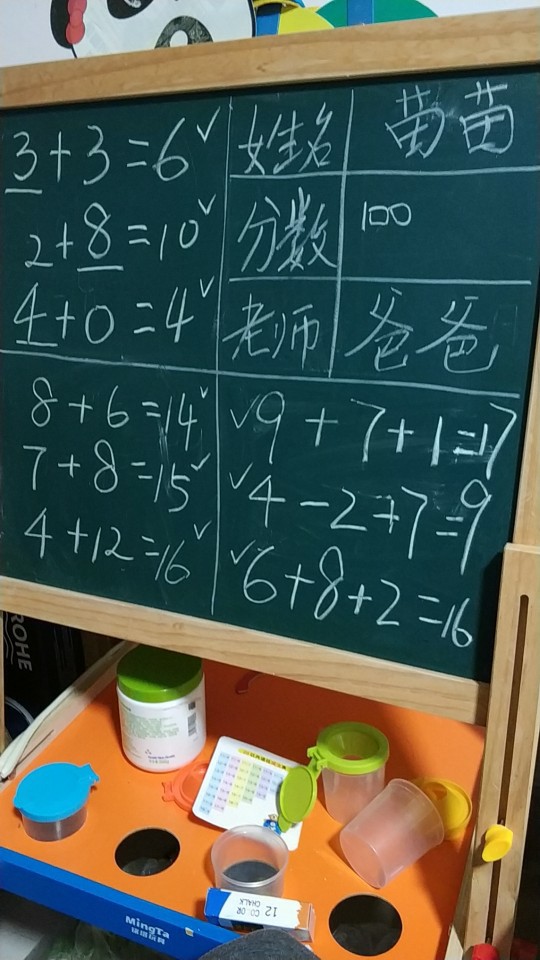 3+3=6✓
2+8=10✓
4+0=4✓
姓名 苗苗
分数 100
老师 爸爸
8+6=14✓
7+8=15✓
4+12=16✓
✓9+7+1=17
✓4-2+7=9
✓6+8+2=16
ROHE
12 COLOR
CHALK
MingTa